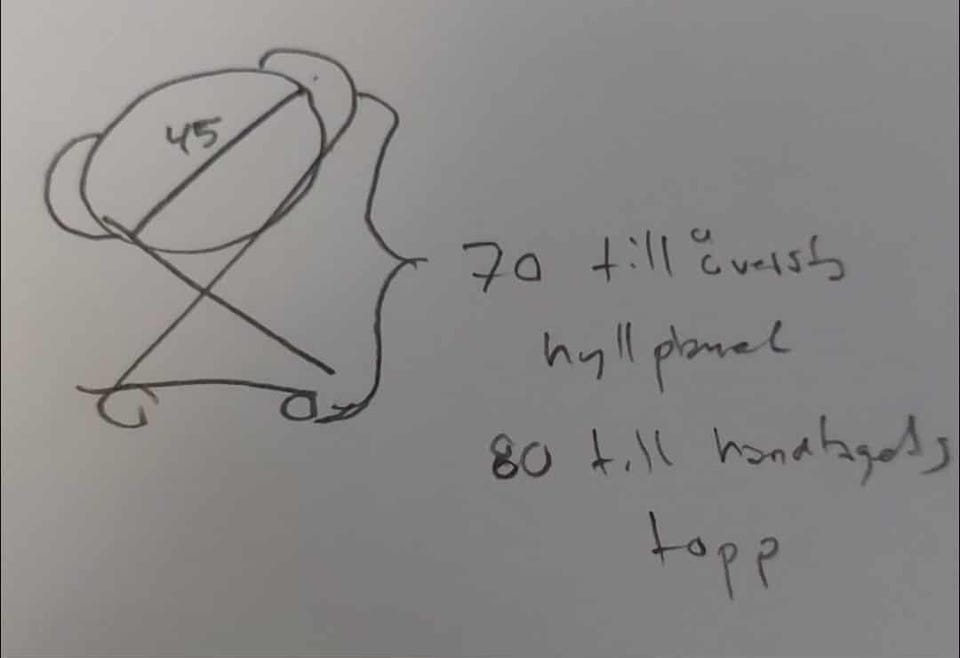 45
70 till översta
hyllplanet
80 till handtagets
topp